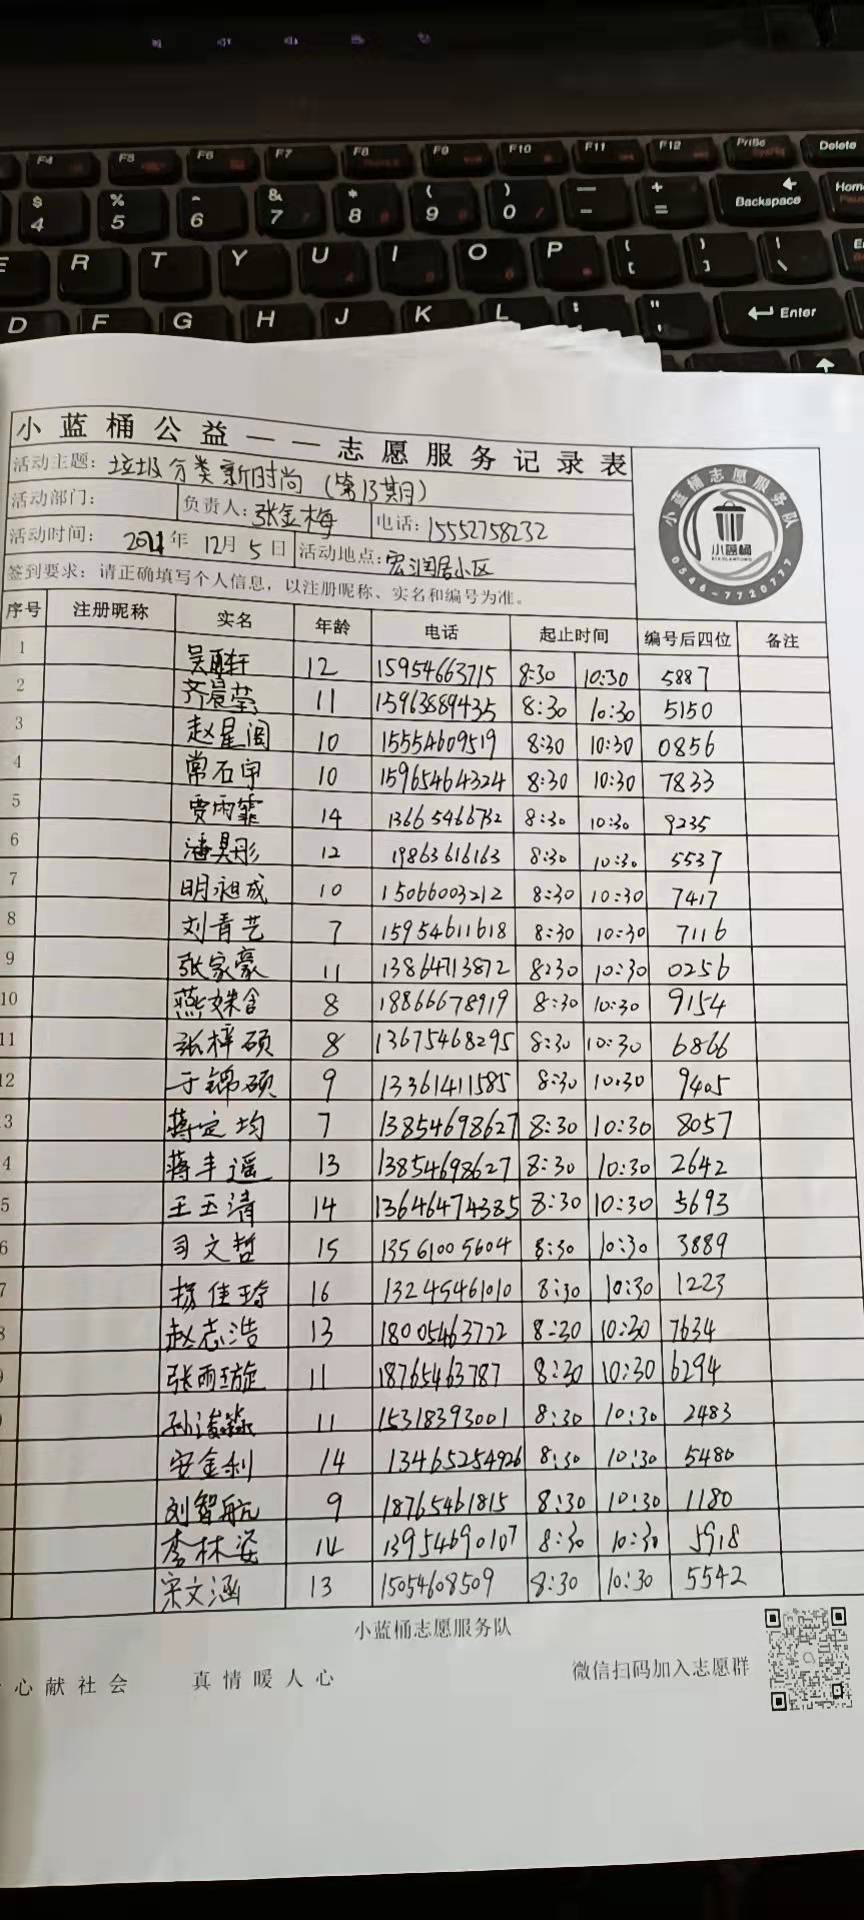 F4 F5 F6 F7 F8 F9 F10 F11 F12 PrtSc SysRq Delete
$ 4 % 5 ^ 6 & 7 * 8 ( 9 ) 0 — - + = Backspace Home
E R T Y U I O P { [ } ] | \
D F G H J K L : ; " ' Enter
小蓝桶公益——志愿服务记录表
活动主题：垃圾分类新时尚（第13期）
活动部门： 负责人：张金梅 电话：15552758232
活动时间： 2021年 12月 5日 活动地点：宏润居小区
签到要求：请正确填写个人信息，以注册昵称、实名和编号为准。
小蓝桶志愿服务队
小蓝桶
XIAOLANTONG
0546-7720777
序号 注册昵称 实名 年龄 电话 起止时间 编号后四位 备注
1 12 15954663715 8:30 10:30 5887
2 齐晨莹 11 15963889435 8:30 10:30 5150
3 赵星阅 10 15554609519 8:30 10:30 0856
4 常石宇 10 15965464324 8:30 10:30 7833
5 贾雨霏 14 13665466732 8:30 10:30 9235
6 潘昊彤 12 19863616163 8:30 10:30 5537
7 明昶成 10 15066003212 8:30 10:30 7417
8 刘青艺 7 15954611618 8:30 10:30 7116
9 张家豪 11 13864713872 8:30 10:30 0256
10 燕姝含 8 18866678919 8:30 10:30 9154
11 张梓硕 8 13675468295 8:30 10:30 6866
12 于锦硕 9 13361411585 8:30 10:30 9405
3 蒋定均 7 13854698627 8:30 10:30 8057
4 蒋丰遥 13 13854698627 8:30 10:30 2642
5 王玉清 14 13646474385 8:30 10:30 5693
6 司文哲 15 13561005604 8:30 10:30 3889
7 杨佳琦 16 13245461010 8:30 10:30 1223
8 赵志浩 13 18005463772 8:30 10:30 7634
张雨璇 11 18765463787 8:30 10:30 6294
11 15318393001 8:30 10:30 2483
安金利 14 13465254926 8:30 10:30 5480
刘智航 9 18765461815 8:30 10:30 1180
李林姿 14 13954690107 8:30 10:30 5918
宋文涵 13 15054608509 8:30 10:30 5542
小蓝桶志愿服务队
心献社会 真情暖人心 微信扫码加入志愿群